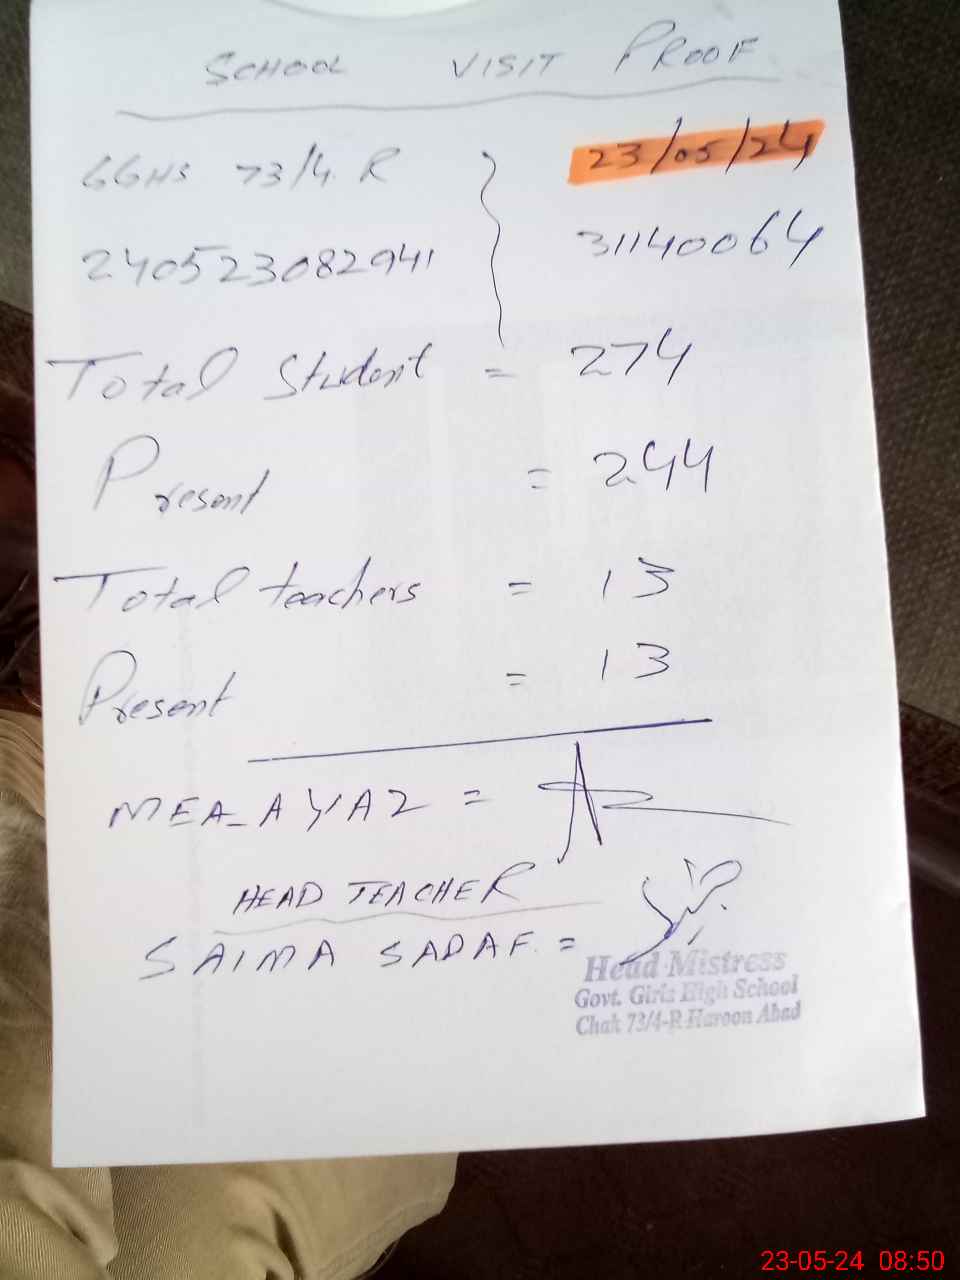 SCHOOL VISIT PROOF
GGHS 73/4.R 23/05/24
240523082941 31140064
Total Student = 274
Present = 244
Total teachers = 13
Present = 13
MEA_AYAZ =
HEAD TEACHER
SAIMA SADAF. =
Head Mistress
Govt. Girls High School
Chak 73/4-R Haroon Abad
23-05-24 08:50